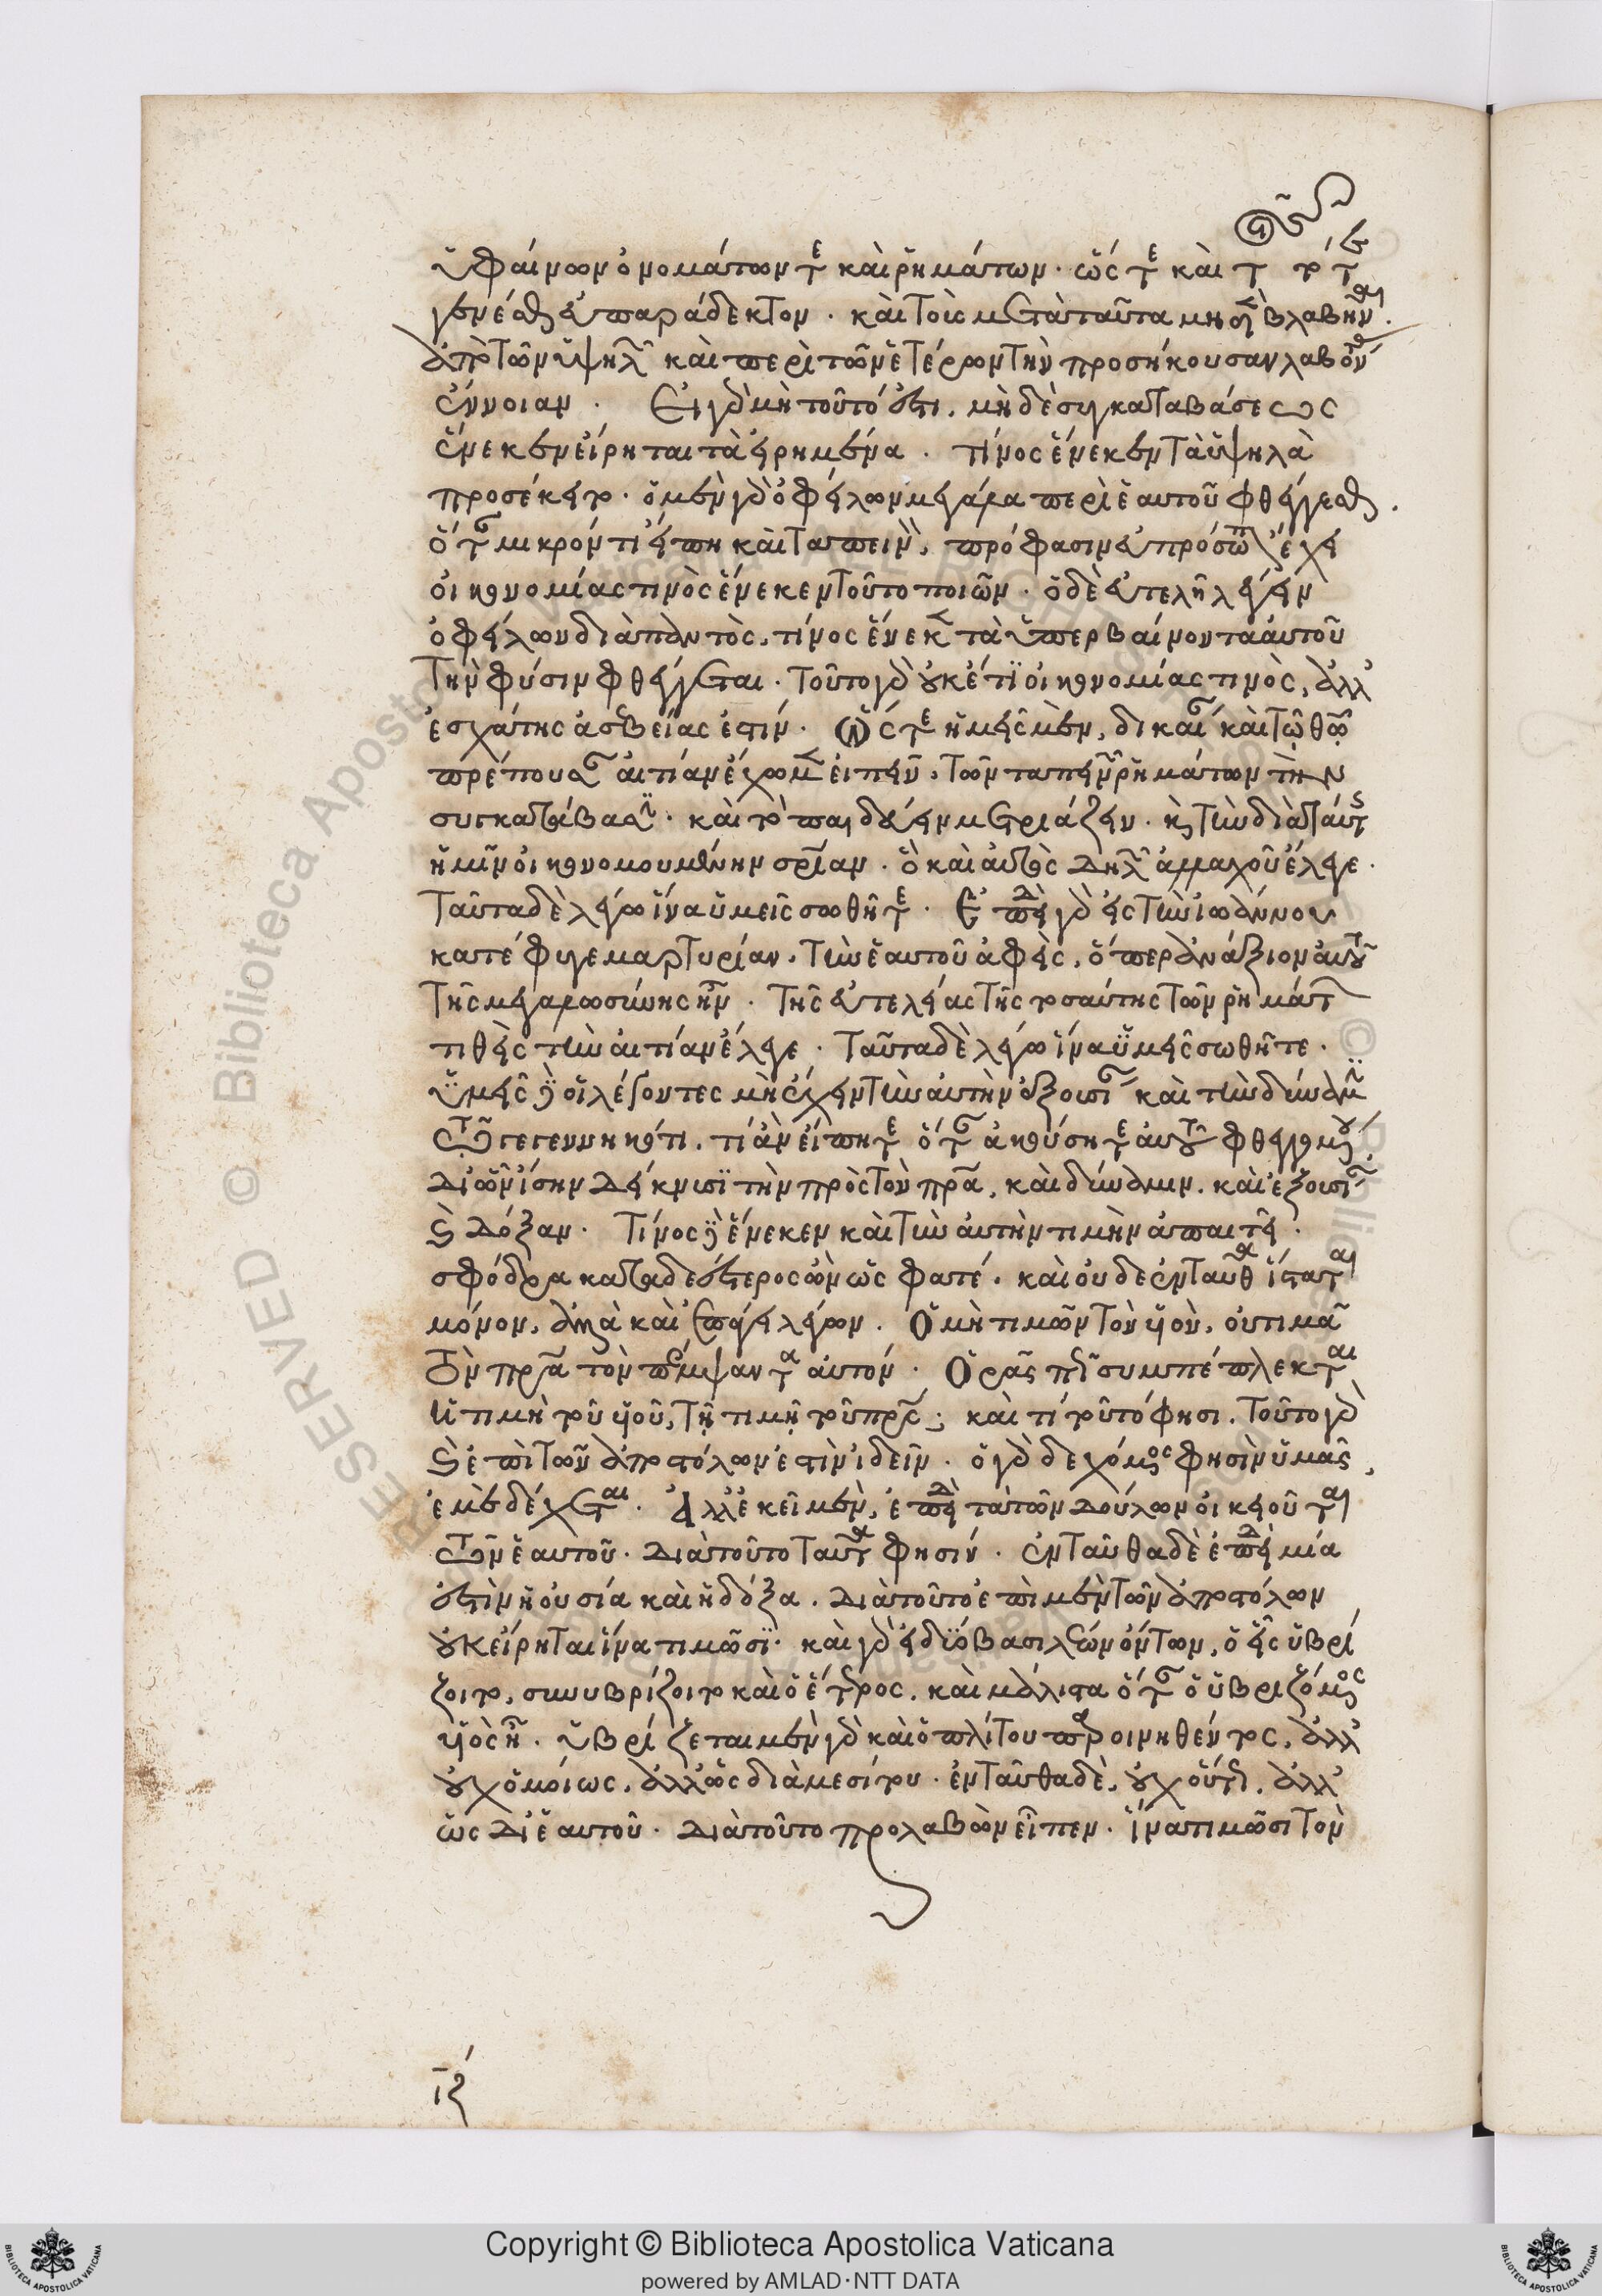 ὑφαίνων ὀνομάτων τε καὶ ῥημάτων· ὥστε καὶ τότε
γενέσθαι εὐπαράδεκτον. καὶ τοῖς μετὰ ταῦτα μηδὲν βλαβῆναι.
ἀπὸ τῶν ὑψηλῶν καὶ περὶ τῶν ἑτέρων τὴν προσήκουσαν λαβόντας
ἔννοιαν. Εἰ γὰρ μὴ τοῦτό ἐστι, μὴ δὲ συγκαταβάσεως
ἕνεκεν εἴρηται τὰ εἰρημένα. τίνος ἕνεκεν τὰ ὑψηλὰ
προσέκειτο. ὁ μὲν γὰρ ὀφείλων μεγάλα περὶ ἑαυτοῦ φθέγγεσθαι.
ὅταν μικρόν τι εἴπη καὶ ταπεινὸν, πρόφασιν εὐπρόσωπον ἔχει
οἰκονομίας τινὸς ἕνεκεν τοῦτο ποιῶν. ὁ δὲ εὐτελῆ λέγειν
ὀφείλων διὰ παντὸς, τίνος ἕνεκεν τὰ ὑπερβαίνοντα αὐτοῦ
τὴν φύσιν φθέγγεται. τοῦτο γὰρ οὐκέτι οἰκονομίας τινὸς, ἀλλ'
ἐσχάτης ἀσεβείας ἐστίν. Ὥστε ἡμεῖς μὲν, δικαίαν καὶ τῷ θεῷ
πρέπουσαν αἰτίαν ἔχομεν εἰπεῖν, τῶν ταπεινῶν ῥημάτων τὴν
συγκατάβασιν. καὶ τὸ παιδεύειν μετριάζειν. καὶ τὴν διὰ ταύτης
ἡμῖν οἰκονομουμένην σωτηρίαν. ὃ καὶ αὐτὸς δηλῶν ἀλλαχοῦ ἔλεγε.
Ταῦτα δὲ λέγω ἵνα ὑμεῖς σωθῆτε. Ἐπειδὴ γὰρ εἰς τὴν ἰωάννου
κατέφυγε μαρτυρίαν, τὴν ἑαυτοῦ ἀφεὶς, ὅπερ ἀνάξιον αὐτοῦ
τῆς μεγαλωσύνης ἦν. τῆς εὐτελείας τῆς τοσαύτης τῶν ῥημάτων
τιθεὶς τὴν αἰτίαν ἔλεγε. Ταῦτα δὲ λέγω ἵνα ὑμεῖς σωθῆτε.
ὑμεῖς δὲ οἱ λέγοντες μὴ ἔχειν τὴν αὐτὴν ἐξουσίαν καὶ τὴν δύναμιν
τῷ γεγεννηκότι, τί ἂν εἴπητε ὅταν ἀκούσητε αὐτοῦ φθεγγομένου
δι' ὧν ἴσην δείκνυσι τὴν πρὸς τὸν πρα, καὶ δύναμιν, καὶ ἐξουσίαν
καὶ δόξαν. Τίνος δὲ ἕνεκεν καὶ τὴν αὐτὴν τιμὴν ἀπαιτεῖ.
σφόδρα καταδεέστερος ὢν ὥς φατέ. καὶ οὐδὲ ἐνταῦθα ἵσταται
μόνον, ἀλλὰ καὶ ἐπάγει λέγων. Ὁ μὴ τιμῶν τὸν υἱὸν, οὐ τιμᾶ
τὸν πρα τὸν πέμψαντα αὐτόν. Ὁρᾶς πῶς συμπέπλεκται
ἡ τιμὴ τοῦ υἱοῦ, τῇ τιμῇ τοῦ πρς; καὶ τί τοῦτό φησι. Τοῦτο γὰρ
καὶ ἐπὶ τῶν ἀποστόλων ἐστὶν ἰδεῖν. ὁ γὰρ δεχόμενος φησὶν ὑμᾶς,
ἐμὲ δέχεται. Ἀλλ' ἐκεῖ μὲν, ἐπειδὴ τὰ τῶν δούλων οἰκειοῦται
τῶν ἑαυτοῦ. διὰ τοῦτο ταῦτα φησίν. ἐνταῦθα δὲ ἐπειδὴ μία
ἐστὶν ἡ οὐσία καὶ ἡ δόξα. διὰ τοῦτο ἐπὶ μὲν τῶν ἀποστόλων
οὐκ εἴρηται ἵνα τιμῶσι. καὶ γὰρ εἰ δύο βασιλέων ὄντων, ὁ εἷς ὑβρί
ζοιτο, συνυβρίζοιτο καὶ ὁ ἕτερος. καὶ μάλιστα ὅταν ὁ ὑβριζόμενος
υἱὸς ἦ. ὑβρίζεται μὲν γὰρ καὶ ὁπλίτου παροινηθέντος, ἀλλ'
οὐχ ὁμοίως, ἀλλ' ὡς διὰ μεσίτου. ἐνταῦθα δὲ, οὐχ οὕτως, ἀλλ'
ὡς δι' ἑαυτοῦ. διὰ τοῦτο προλαβὼν εἶπεν. ἵνα τιμῶσι τὸν
Copyright © Biblioteca Apostolica Vaticana
powered by AMLAD·NTT DATA